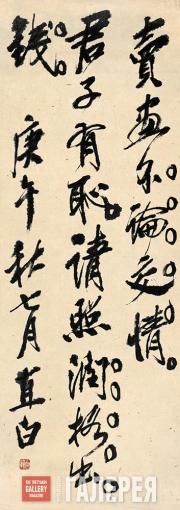 賣畫不論交情
君子有恥請照潤格出
錢庚午秋七月直白
THE TRETYAKOV
GALLERY
MAGAZINE
ГАЛЕРЕЯ